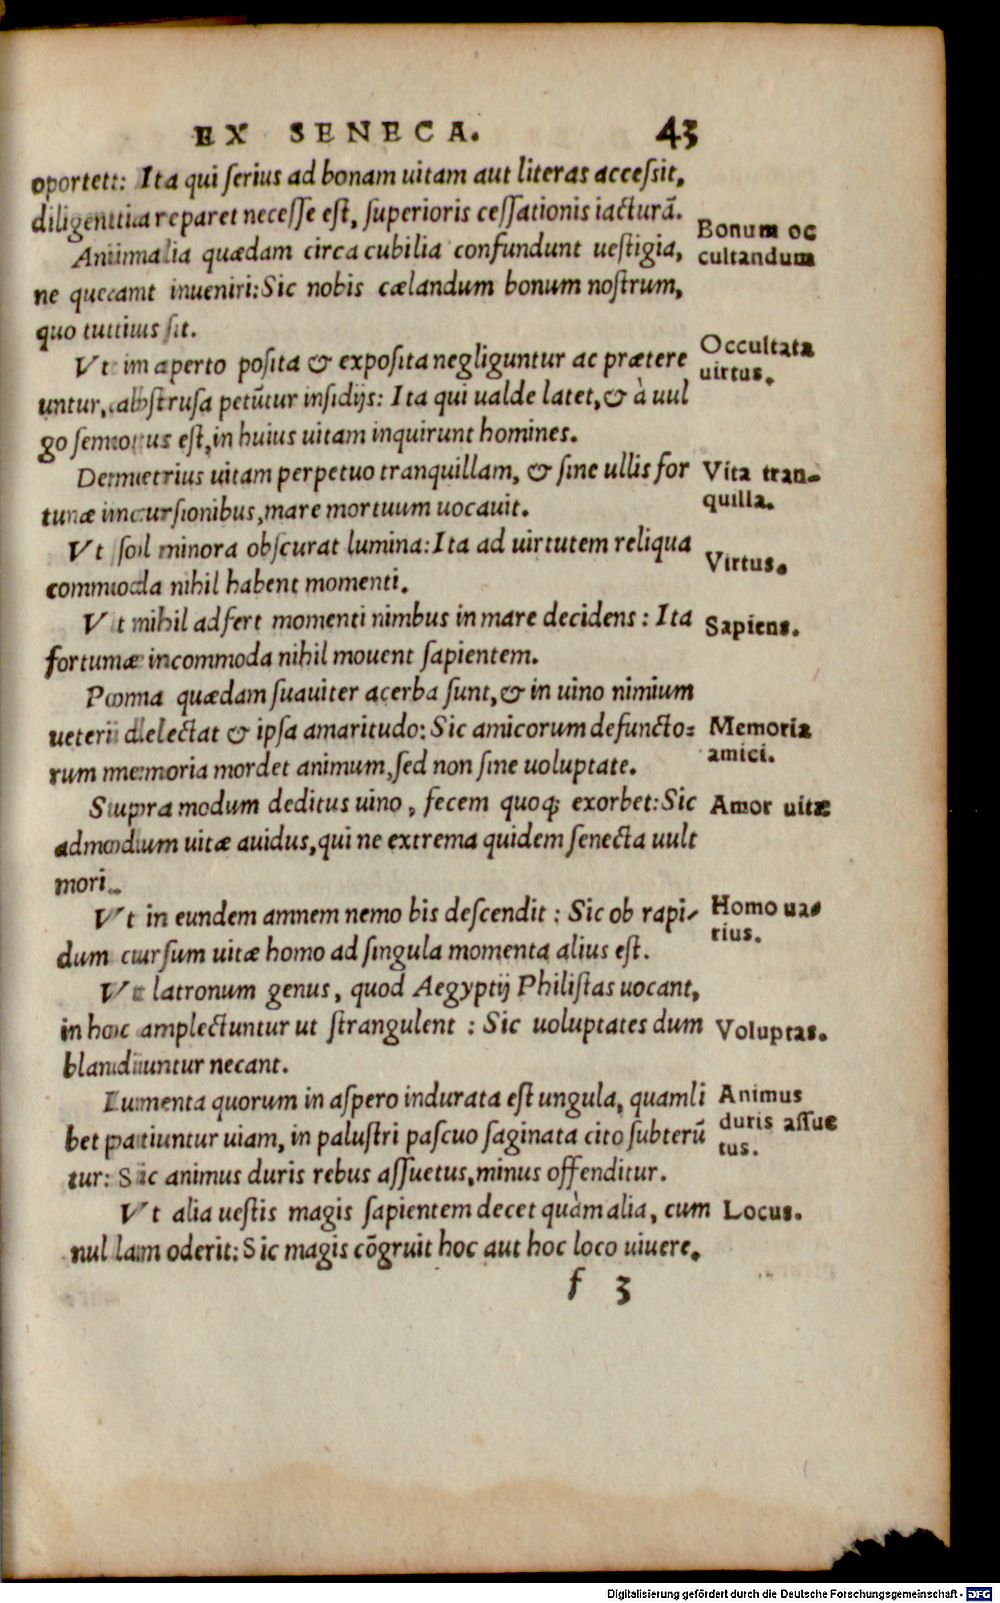 EX SENECA. 43
oportet: Ita qui serius ad bonam uitam aut literas accessit,
diligentia reparet necesse est, superioris cessationis iacturā.
Bonum oc
cultandum
Animalia quædam circa cubilia confundunt uestigia,
ne queant inueniri: Sic nobis cælandum bonum nostrum,
quo tutius sit.
Occultata
uirtus.
Vt in aperto posita & exposita negliguntur ac prætere
untur, abstrusa petūtur insidijs: Ita qui ualde latet, & à uul
go semotus est, in huius uitam inquirunt homines.
Vita tran-
quilla.
Demetrius uitam perpetuo tranquillam, & sine ullis for
tunæ incursionibus, mare mortuum uocauit.
Virtus.
Vt sol minora obscurat lumina: Ita ad uirtutem reliqua
commoda nihil habent momenti.
Sapiens.
Vt nihil adfert momenti nimbus in mare decidens: Ita
fortunæ incommoda nihil mouent sapientem.
Memoria
amici.
Poma quædam suauiter acerba sunt, & in uino nimium
ueteri delectat & ipsa amaritudo: Sic amicorum defuncto-
rum memoria mordet animum, sed non sine uoluptate.
Amor uitæ
Supra modum deditus uino, fecem quoq; exorbet: Sic
admodum uitæ auidus, qui ne extrema quidem senecta uult
mori.
Homo ua-
rius.
Vt in eundem amnem nemo bis descendit: Sic ob rapi-
dum cursum uitæ homo ad singula momenta alius est.
Voluptas.
Vt latronum genus, quod Aegyptij Philistas uocant,
in hoc amplectuntur ut strangulent: Sic uoluptates dum
blandiuntur necant.
Animus
duris assue
tus.
Iumenta quorum in aspero indurata est ungula, quamli
bet patiuntur uiam, in palustri pascuo saginata cito subterū
tur: Sic animus duris rebus assuetus, minus offenditur.
Locus.
Vt alia uestis magis sapientem decet quàm alia, cum
nullam oderit: Sic magis cōgruit hoc aut hoc loco uiuere.
f 3
Digitalisierung gefördert durch die Deutsche Forschungsgemeinschaft - DFG